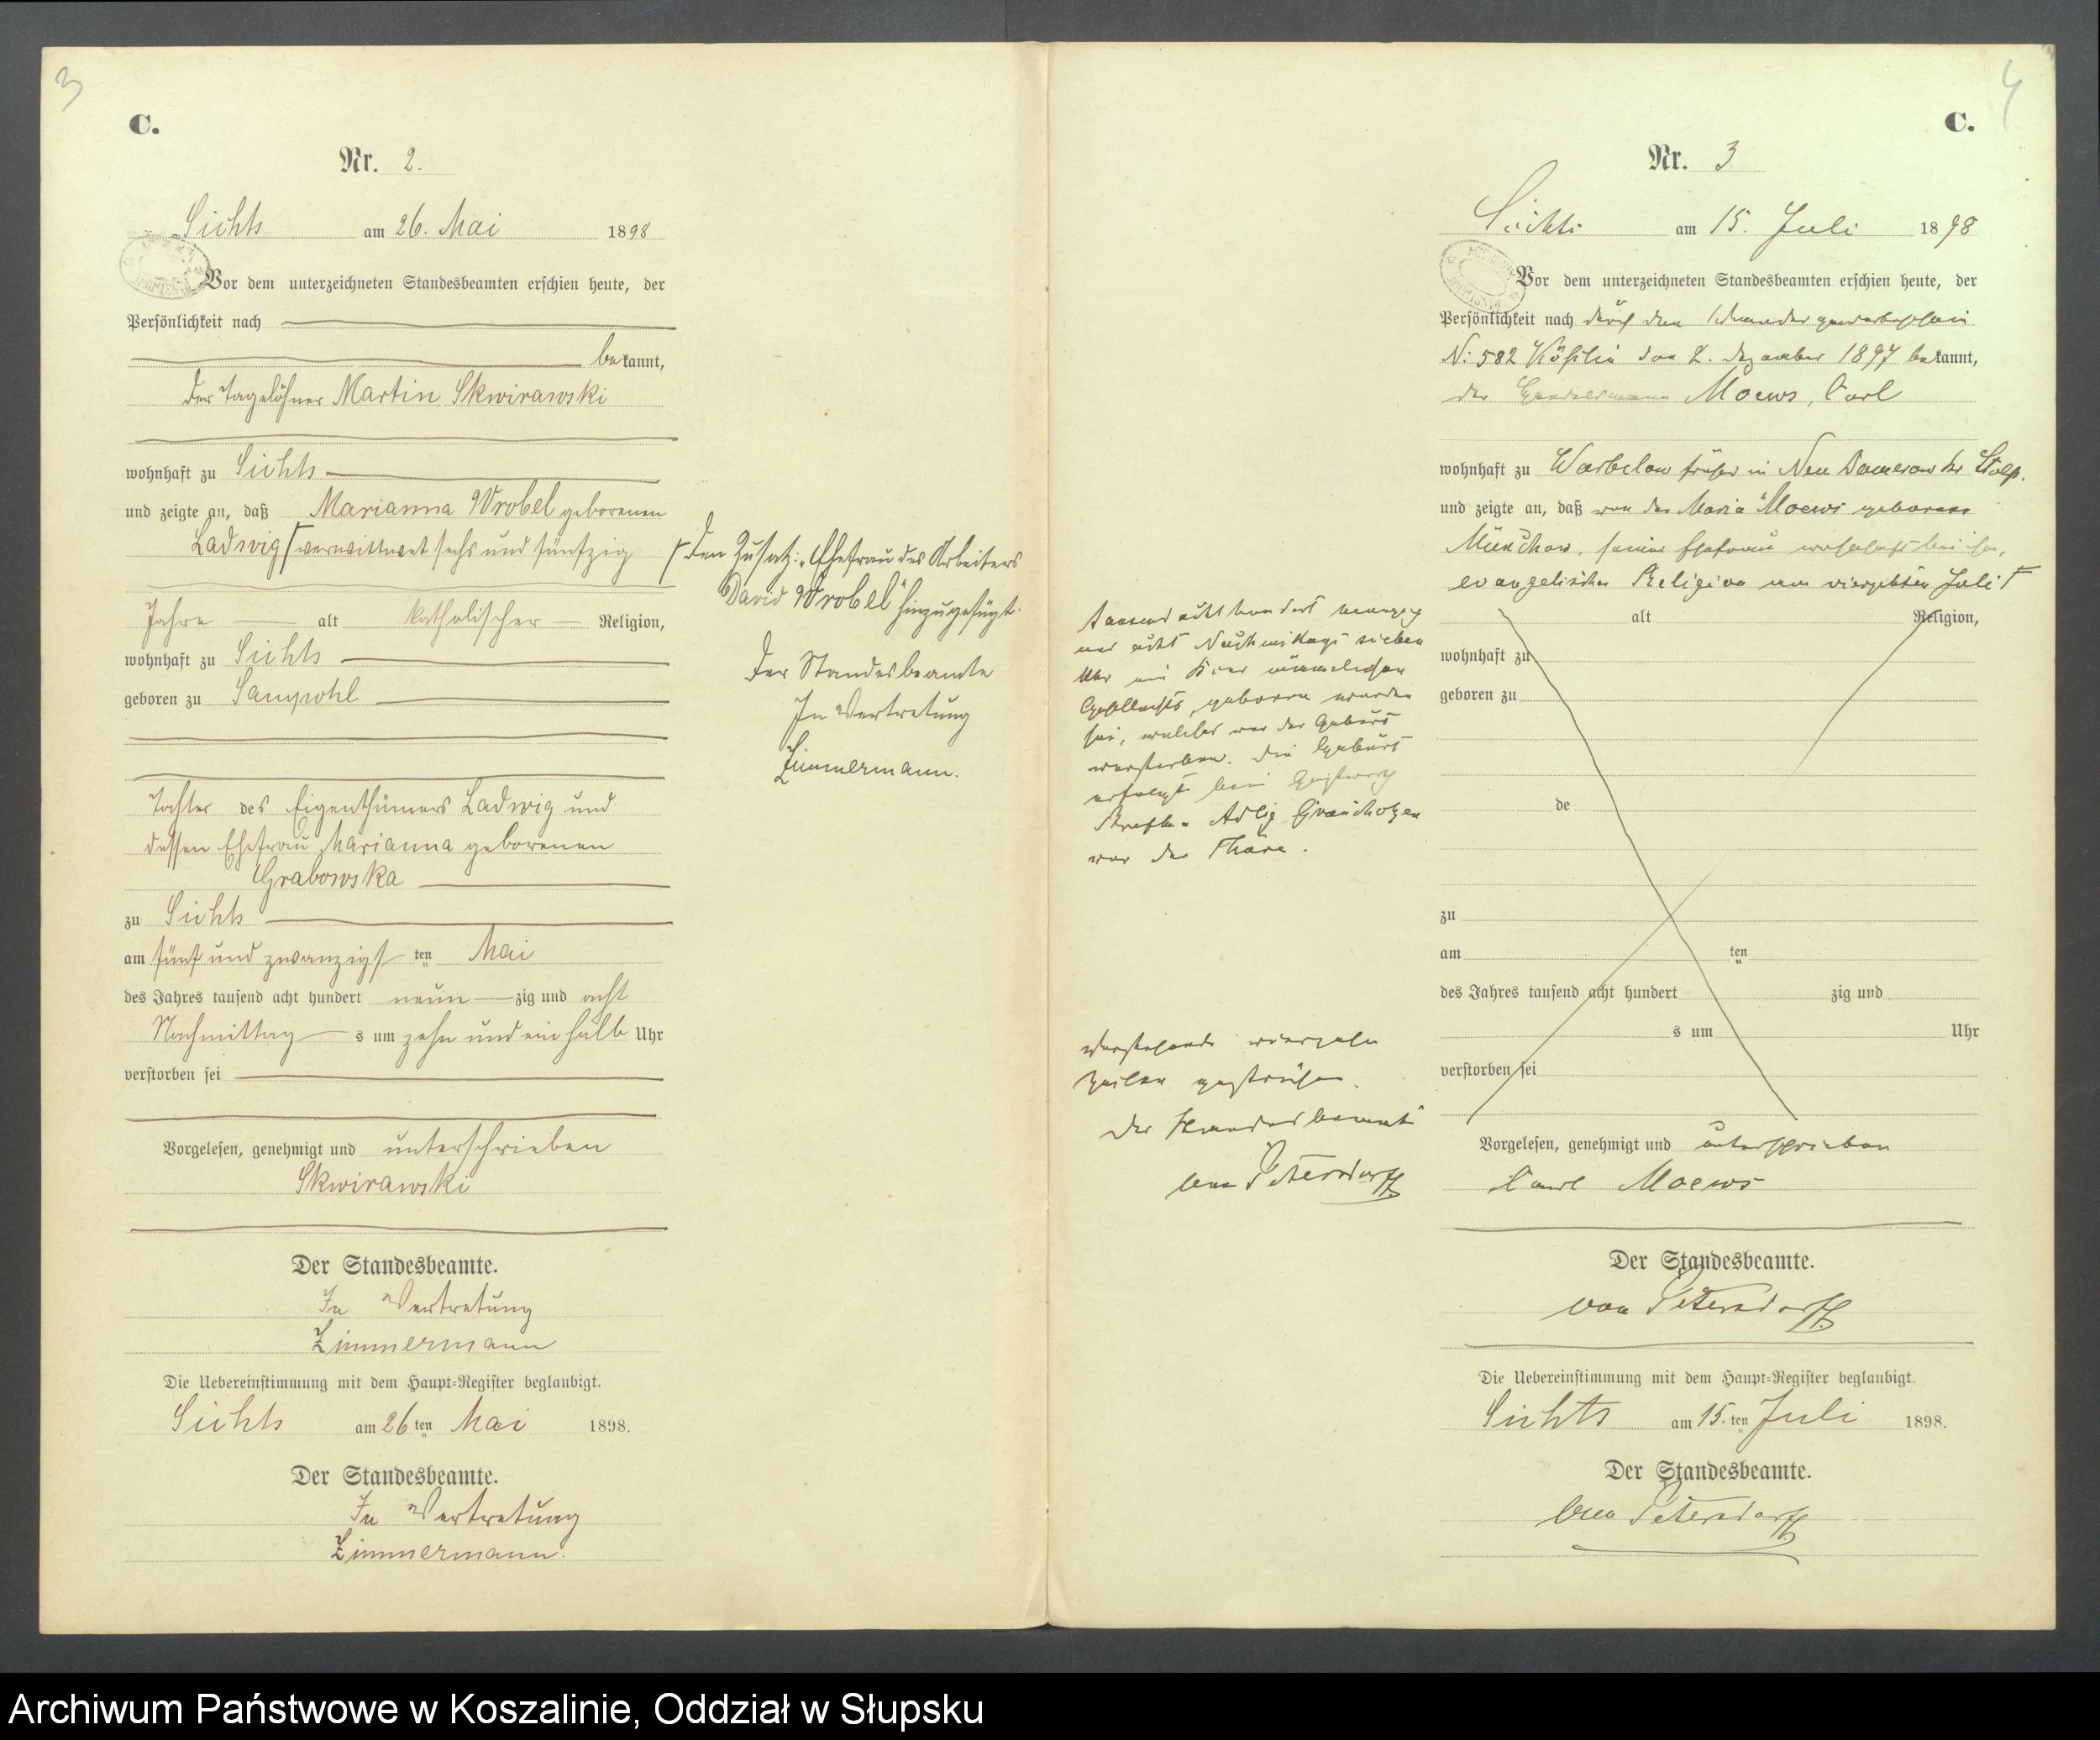 3
C.
Nr. 2.
Sichts am 26. Mai 1898
Vor dem unterzeichneten Standesbeamten erschien heute, der
Persönlichkeit nach
bekannt,
der Tagelöhner Martin Skwirawski
wohnhaft zu Sichts
und zeigte an, daß Marianna Wrobel geborenen
Ladwig verwittwet sechs und fünfzig
Jahre alt katholischer Religion,
wohnhaft zu Sichts
geboren zu Sampohl
Tochter des Eigenthümers Ladwig und
dessen Ehefrau Marianna geborenen
Grabowska
zu Sichts
am fünf und zwanzigsten Mai
des Jahres tausend acht hundert neunzig und acht
Nachmittags um zehn und ein halb Uhr
verstorben sei
Vorgelesen, genehmigt und unterschrieben
Skwirawski
Der Standesbeamte.
In Vertretung
Zimmermann
Die Uebereinstimmung mit dem Haupt-Register beglaubigt.
Sichts am 26ten Mai 1898.
Der Standesbeamte.
In Vertretung
Zimmermann.
Den Zusatz: „Ehefrau des Arbeiters
David Wrobel" hinzugefügt.
Der Standesbeamte
In Vertretung
Zimmermann.
4
C.
Nr. 3
Sichts am 15. Juli 1898
Vor dem unterzeichneten Standesbeamten erschien heute, der
Persönlichkeit nach durch den
N: 582 Köslin den 2. Dezember 1897 bekannt,
der Moews, Carl
wohnhaft zu Warbelow früher in Neu Damerow Kr Stolp.
und zeigte an, daß von der Maria Moews geborene
Münchow, seiner Ehefrau wohnhaft bei ihm,
evangelischer Religion am vierzehnten Juli
alt Religion,
wohnhaft zu
geboren zu
de
zu
am ten
des Jahres tausend acht hundert zig und
s um Uhr
verstorben sei
Vorgelesen, genehmigt und unterschrieben
Carl Moews
Der Standesbeamte.
von Petersdorff
Die Uebereinstimmung mit dem Haupt-Register beglaubigt.
Sichts am 15.ten Juli 1898.
Der Standesbeamte.
von Petersdorff
tausend acht hundert neunzig
und acht Nachmittags sieben
Uhr ein Kind männlichen
Geschlechts, geboren worden
sei, welches vor der Geburt
verstorben. Die Geburt
erfolgt beim Gastwirth
Adlig
vor der Thüre.
Vorstehende vierzehn
Zeilen gestrichen.
Der Standesbeamte
von Petersdorff
Archiwum Państwowe w Koszalinie, Oddział w Słupsku